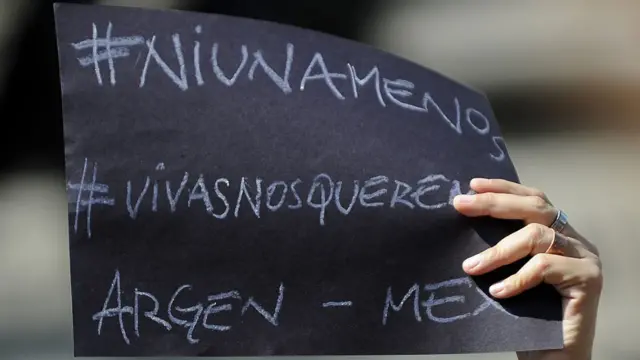 #NiUNAMENOS
#VIVASNOSQUEREM
ARGEN - MEX